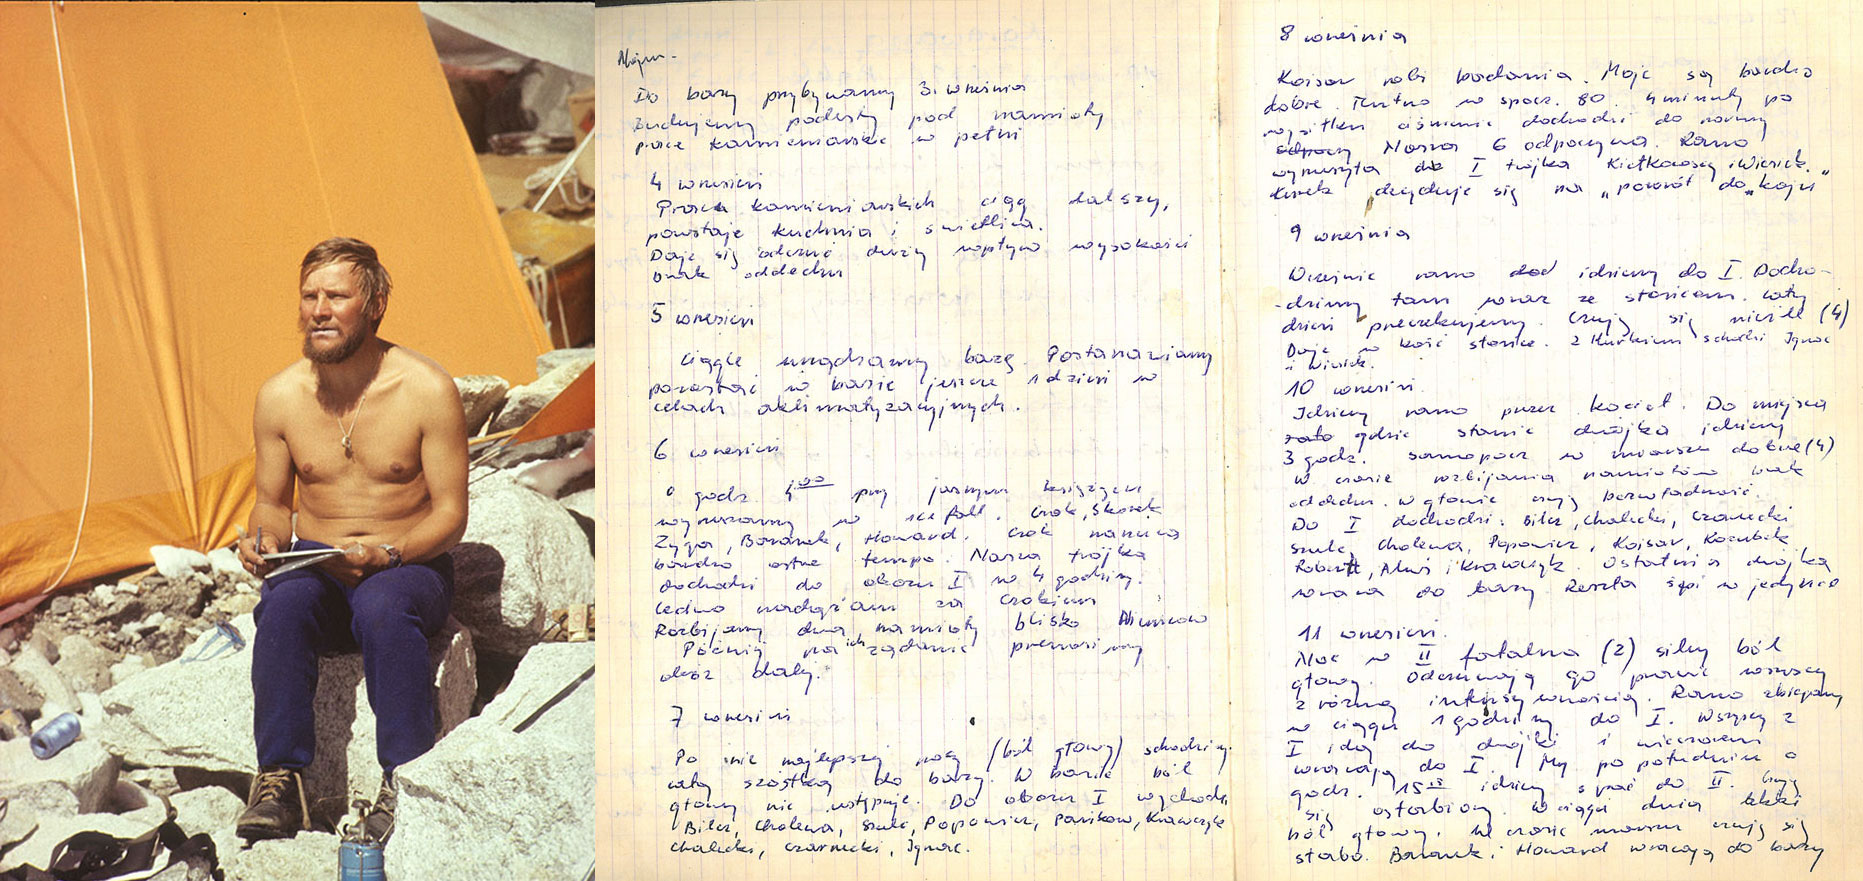 Do bazy przybywamy 3. września
Budujemy podesty pod namioty
prace kamieniarskie w pełni
4 wrzesień
Prace kamieniarskich ciąg dalszy,
powstaje kuchnia i świetlica.
Daje się odczuć duży wpływ wysokości
brak oddechu
5 wrzesień
Ciągle urządzamy bazę. Postanawiamy
pozostać w bazie jeszcze 1 dzień w
celach aklimatyzacyjnych.
6 wrzesień
O godz 4⁰⁰ przy jasnym księżycu
wyruszamy w icefall. Czok, Skorek
Zyga, Baranek, Howard. Czok narzuca
bardzo ostre tempo. Nasza trójka
dochodzi do obozu I w 4 godziny.
Ledwo nadążam za Czokiem
Rozbijamy dwa namioty blisko Niemców
Później na ich żądanie przenosimy
obóz dalej.
7 wrzesień
Po nie najlepszej nocy (ból głowy) schodzimy
całą szóstką do bazy. W bazie ból
głowy nie ustępuje. Do obozu I wychodzi
Bilcz, Cholewa, Szulc, Popowicz, Pawików, Krawczyk
Chalecki, Czarnecki, Ignac.
8 września
Kojsar robi badania. Moje są bardzo
dobre. Tętno w spocz. 80. 4 minuty po
wysiłku ciśnienie dochodzi do normy
Nasza 6 odpoczywa. Rano
wyruszyła do I trójka Kiełkowscy i Wiesiek.
decyduje się na „powrót do kraju”
9 września
Wcześnie rano idziemy do I. Docho-
-dzimy tam wraz ze słońcem. Cały
dzień przeczekujemy. Czuję się nieźle (4)
Daje w kość słońce. Z schodzi Ignac
i Wiesiek.
10 wrzesień.
Idziemy rano przez kocioł. Do miejsca
gdzie stanie dwójka idziemy
3 godz. samopocz w marszu dobre (4)
W czasie rozbijania namiotów brak
oddechu. W głowie czuję bezwładność.
Do I dochodzi: Bilcz, Chalecki, Czarnecki
Szulc, Cholewa, Popowicz, Kojsar, Kocubek
Robert, Alus i Krawczyk. Ostatnia dwójka
wraca do bazy Reszta śpi w jedynce
11 wrzesień.
Noc w II fatalna (2) silny ból
głowy. Odczuwają go prawie wszyscy
z różną intensywnością. Rano zbiegamy
w ciągu 1 godziny do I. Wszyscy z
I idą do dwójki i wieczorem
wracają do I. My po południu o
godz. 15 idziemy spać do II. Czuję
się osłabiony. W ciągu dnia lekki
ból głowy. W czasie marszu czuję się
słabo. Baranek i Howard wracają do bazy